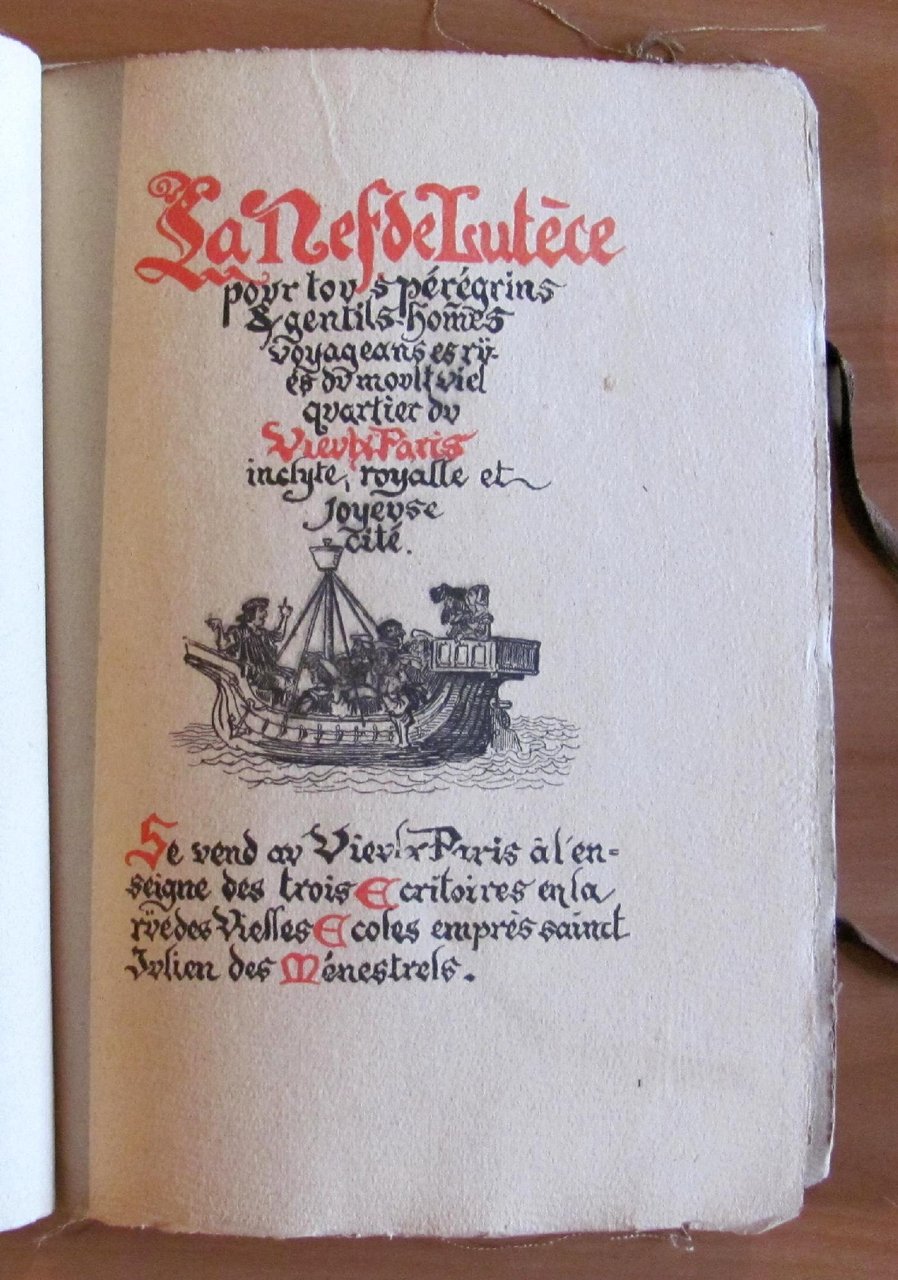 La Nef de Lutèce
povr tovs pérégrins
& gentils-hom̃es
voyageans es rÿ-
es dv movlt viel
qvartier dv
Vievlx Paris
inclyte, royalle et
joyevse
cité.
Se vend av Vievlx Paris à l'en=
seigne des trois Ecritoires en la
rÿe des Vielles Ecoles emprès sainct
Jvlien des Ménestrels.